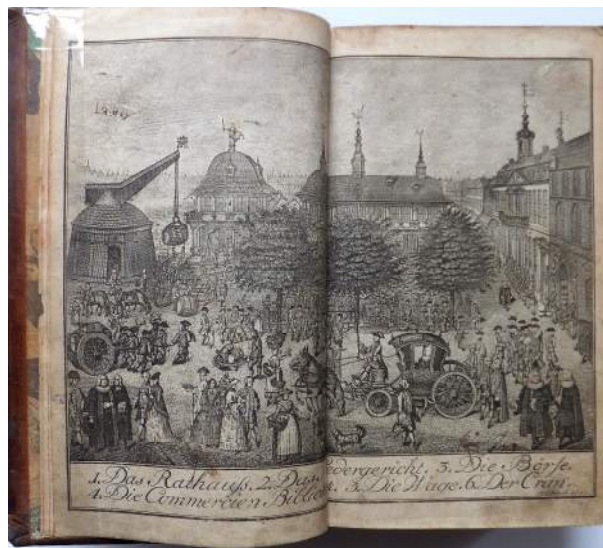 1. Das Rathauß. 2. Das Niedergericht. 3. Die Börse.
4. Die Commercien Biblioth 5. Die Wage. 6. Der Cran.